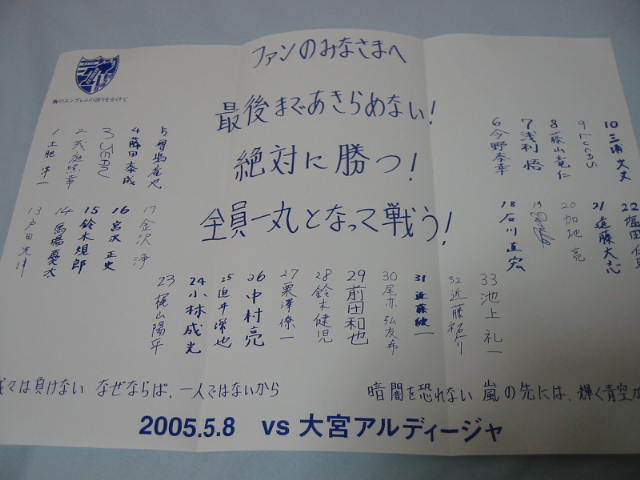 ファンのみなさまへ
胸のエンブレムの誇りをかけて
最後まであきらめない!
絶対に勝つ!
全員一丸となって戦う!
1 土肥 洋一
2
3 JEAN
4 藤田 泰成
5
6 今野 泰幸
7 浅利 悟
8 藤山 竜仁
9 Lucas
10 三浦 文丈
13 戸田 光洋
14 馬場 憂太
15 鈴木 規郎
16 宮沢 正史
17 金沢 浄
18 石川 直宏
19
20 加地 亮
21 遠藤 大志
22
23 梶山 陽平
24 小林 成光
25
26 中村 亮
27 栗澤 僚一
28 鈴木 健児
29 前田 和也
30 尾亦 弘友希
31 近藤 健一
32 近藤 祐介
33 池上 礼一
我々は負けない なぜならば、一人ではないから
暗闇を恐れない 嵐の先には、輝く青空が
2005.5.8 vs 大宮アルディージャ